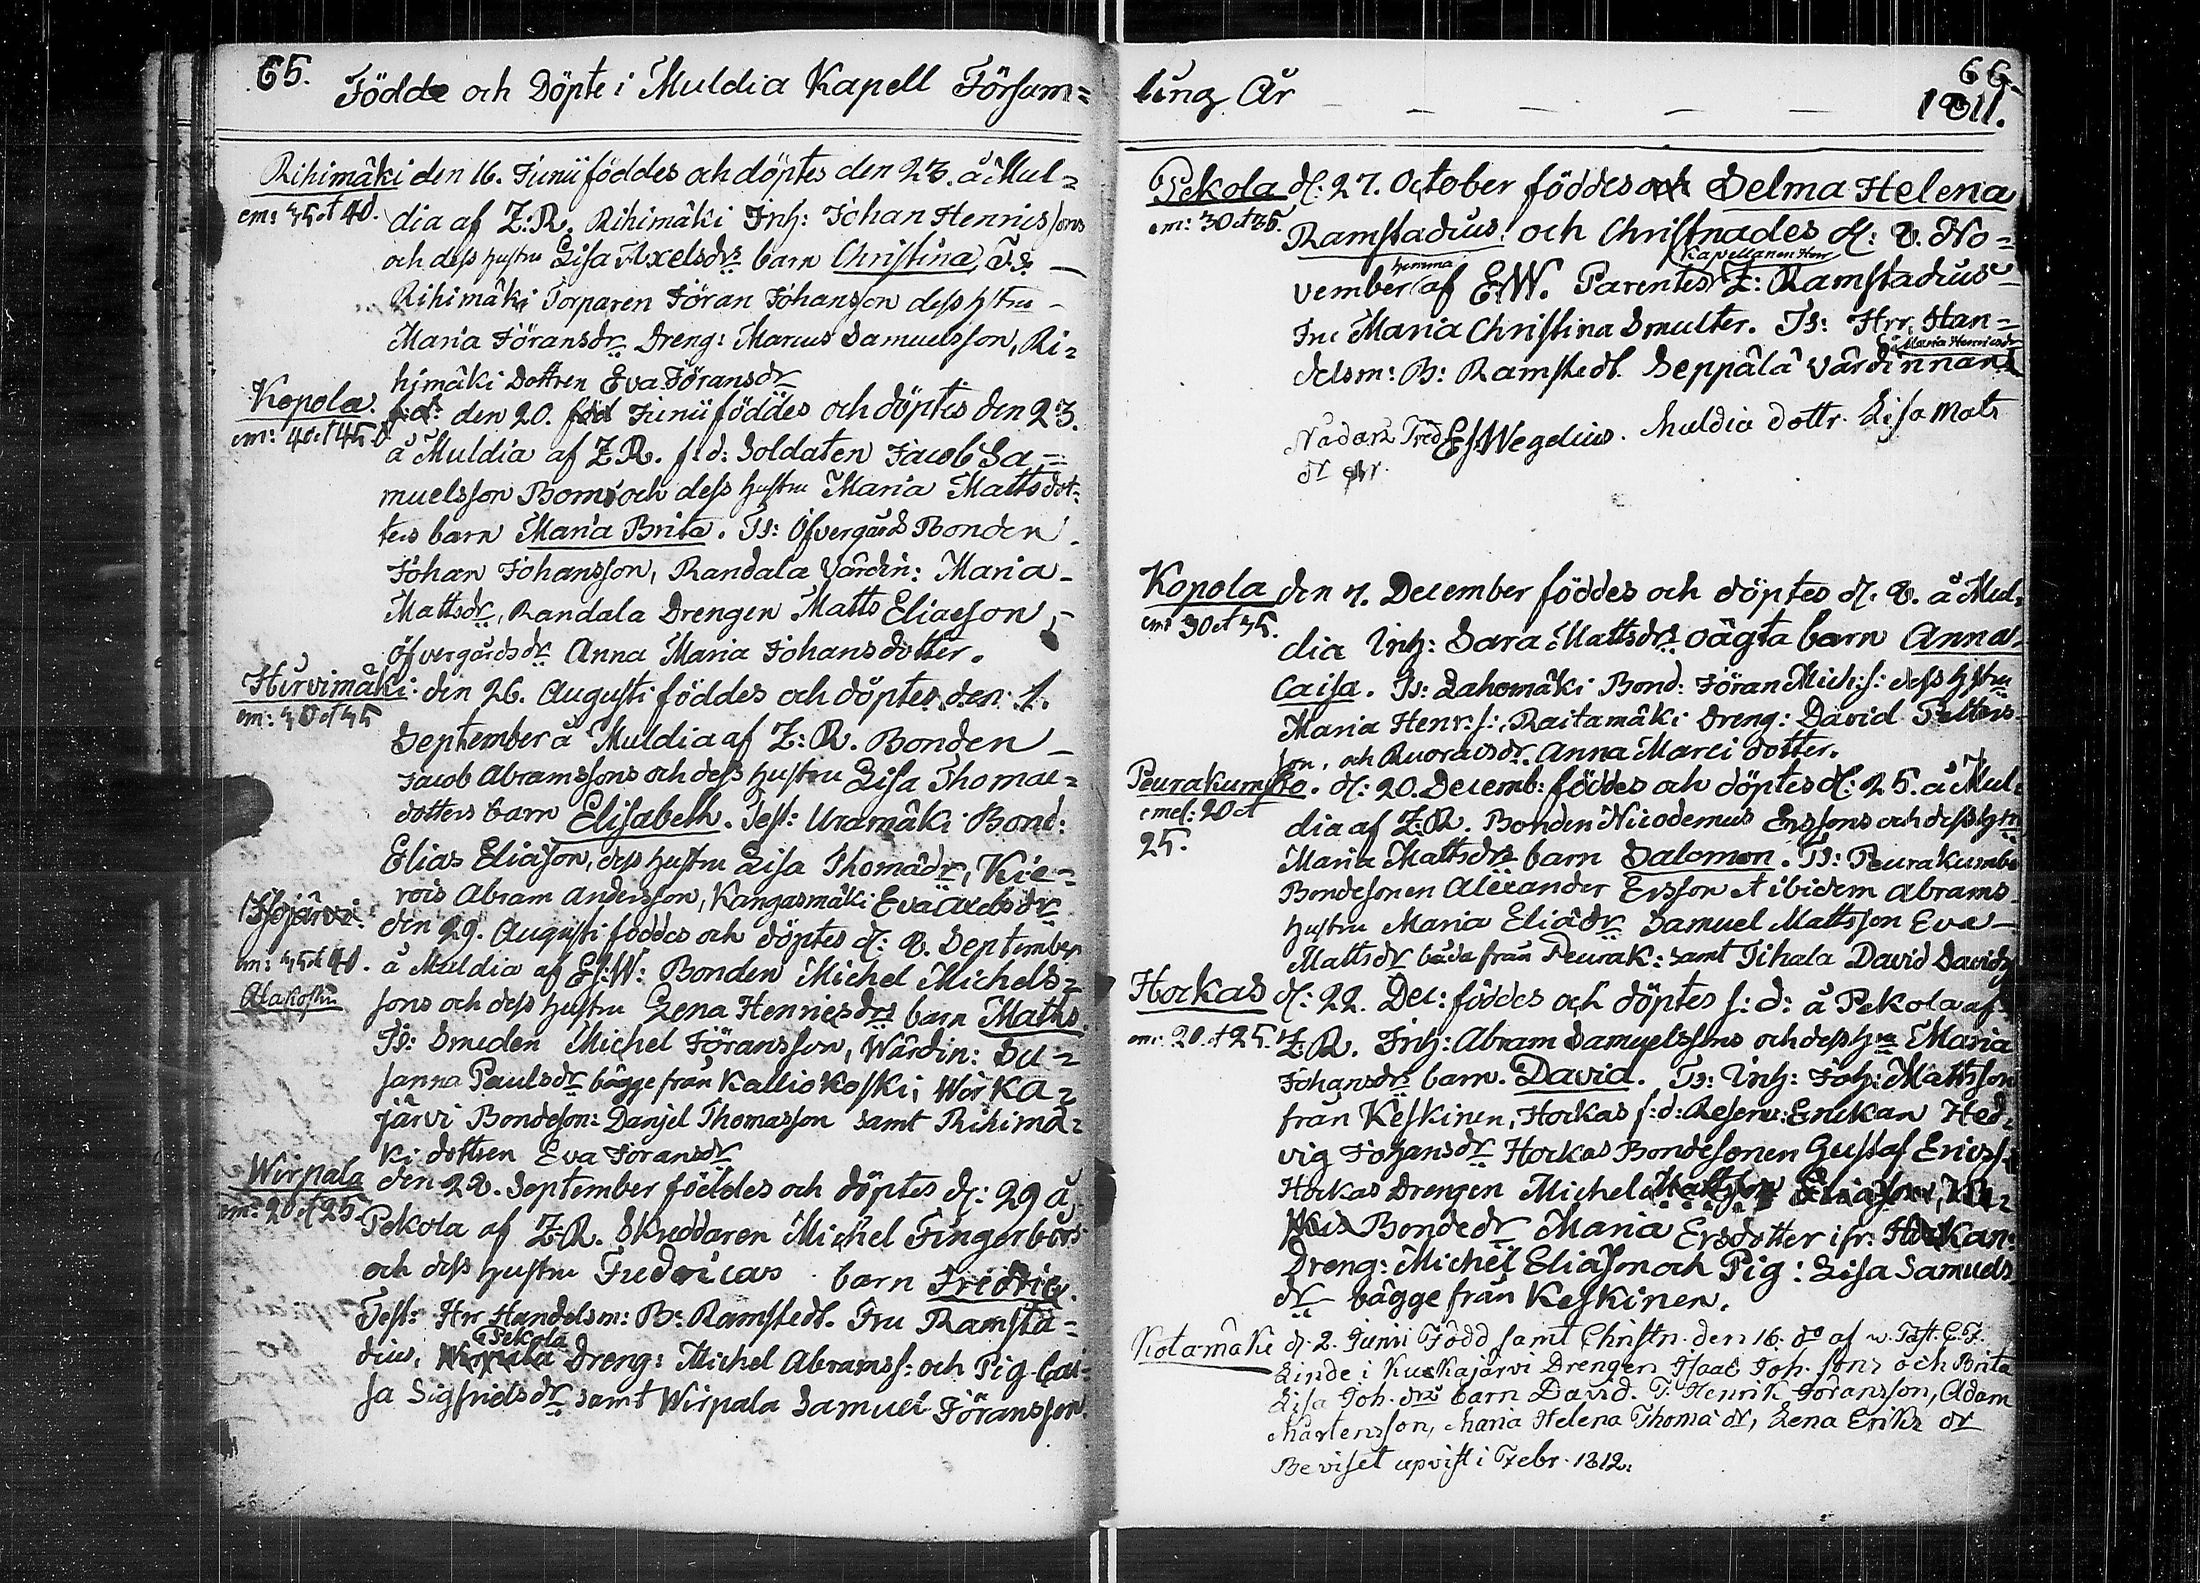 65.
Födde och Döpte i Muldia Kapell Försam=
Rihimäki den 16. Junii föddes och döptes den 23. å Mul=
em: 35 et 40. dia af Z:R. Rihimäki Inh: Johan Henricssons
och dess hustru Lisa Axelsdrs barn Christina, Ts
Rihimäki Torparen Jöran Johansson dess hstru
Maria Jöransdr Dreng: Marcus Samuelsson, Ri=
himäki Dottren Eva Jöransdr
Kopola. den 20. Junii föddes och döptes den 23.
em: 40 et 45. å Muldia af Z.R. f.d: Soldaten Jacob Sa=
muelsson Boms och dess hustru Maria Mattsdot=
ters barn Maria Brita. Ts: Öfvergårds Bonden
Johan Johansson, Randala Värdin: Maria
Mattsdr, Randala Drengen Matts Eliæson,
Öfvergårdsdr Anna Maria Johansdotter.
Hirvimäki: den 26. Augusti föddes och döptes den 1.
em: 30 et 35 September å Muldia af Z:R. Bonden
Jacob Abramssons och dess hustru Lisa Thomae=
dotters barn Elisabeth. Test: Uramäki Bond:
Elias Eliæson, dess hustru Lisa Thomædr, Kie=
rois Abram Andersson, Kangasmäki Eva Axelsdr
Isojärvi: den 29. Augusti föddes och döptes d: 8. September
em: 35 et 40. å Muldia af Es:W: Bonden Michel Michels=
Alakoski sons och dess hustru Lena Henricsdrs barn Matts
Ts: Smeden Michel Jöransson, Wärdin: Su=
sanna Paulsdr bägge från Kalliokoski, Worka=
järvi Bondeson: Danjel Thomasson samt Rihimä=
ki dottren Eva Jöransdr
Wirpala den 28. September föddes och döptes d: 29 å
em: 20 et 25. Pekola af Z.R. Skräddaren Michel Fingerbors
och dess hustru Fredricas barn Fredric.
Test: Hrr Handelsm: B: Ramstedt. Fru Ramsta=
Pekola
dius, Dreng: Michel Abramss: och Pig Cai=
sa Sigfridsdr samt Wirpala Samuel Jöransson.
66.
ling År 1811.
Pekola d: 27. October föddes och Selma Helena
em: 30 et 35. Ramstadius, och Christnades d: 8. No=
hemma Kapellanen Herr
vember af E.W. Parentes Z: Ramstadius
Fru Maria Christina Smulter. Ts: Hrr. Han=
Maria Henricsdr
delsm: B: Ramstedt. Seppälä värdinnan
Es Wegelius. Muldia dottr. Lisa Mats
dr
Kopola den 7. December föddes och döptes d. 8. å Mul=
em: 30 et 35. dia Inh: Sara Mattsdrs oägta barn Anna
Caisa. Ts: Lahomäki Bond: Jöran Mich:s: dess hstru
Maria Henr:s:, Raitamäki Dreng: David Petters=
son, och Ruoraisdr Anna Marci dotter.
Peurakumbo. d: 20. Decemb: föddes och döptes d: 25. å Mul=
em: 20 et dia af Z:R. Bonden Nicodemus Erssons och dess hru
25. Maria Mattsdrs barn Salomon. Ts: Peurakumbo
Bondesonen Alexander Ersson et ibidem Abrams
hustru Maria Eliædr Samuel Mattsson Eva
Mattsdr båda från Peurak: samt Tihala David Davids
Horkas d: 22. Dec: föddes och döptes s:d: å Pekola af
em: 20 et 25. Z.R. Inh: Abram Samuelssons och dess hru Maria
Johansdrs barn. David. Ts: Inh: Joh: Mattsson
från Keskinen, Horkas f:d: Reserv: Enckan Hed=
vig Johansdr Horkas Bondesonen Gustaf Ericss.
Horkas Drengen Michel
Bondedr Maria Ersdotter ifr:
Dreng: Michel Eliæson och Pig: Lisa Samuels
dr bägge från Keskinen.
Kotamäki d. 2. Junii Född samt Christn. den 16. do af w. Past. C.F.
Linde i Kuckajärvi Drengen Isaac Joh. sons och Brita
Lisa Joh. drs barn David. T. Henrik Jöransson, Adam
Mårtensson, Maria Helena Thomæ dr, Lena Eriks dr
Beviset upvist i Febr. 1812.